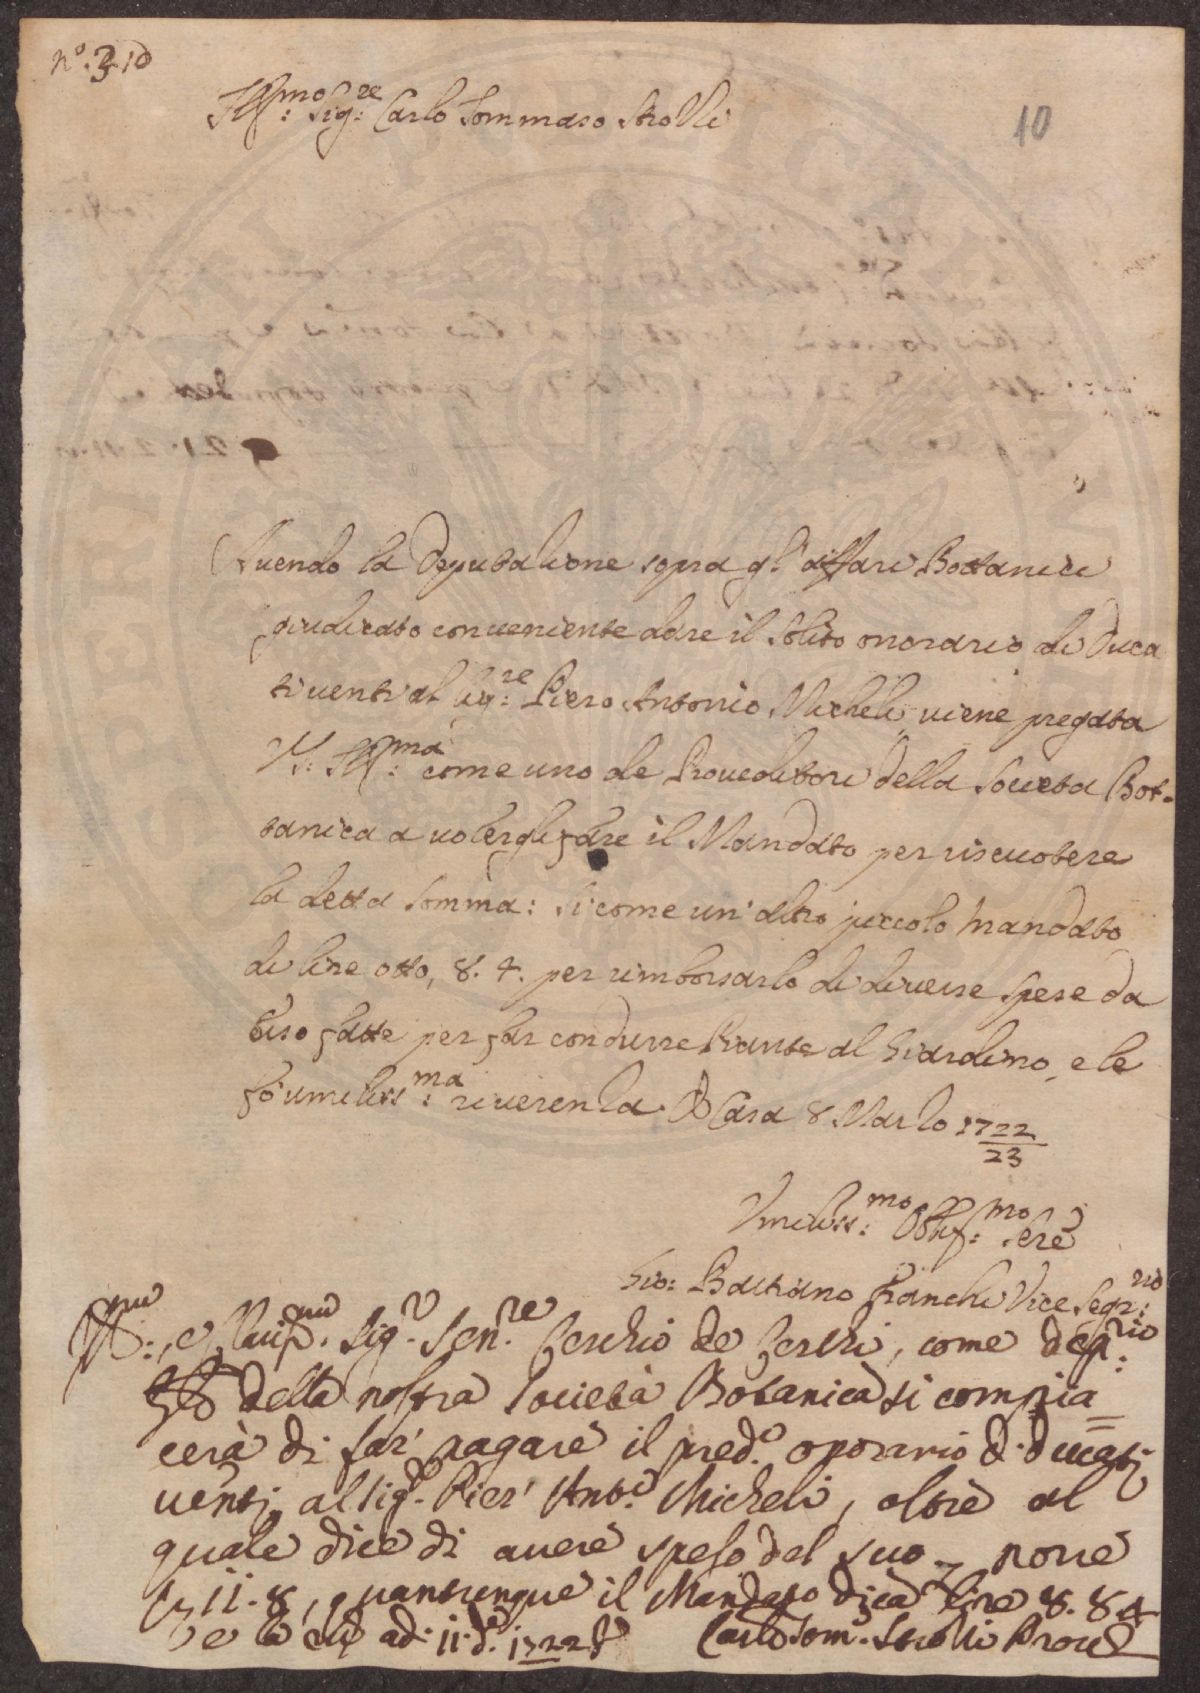 N.° 310
10
Ill:mo Sig:re Carlo Tommaso Strozzi
Auendo la Deputazione sopra gl'affari Bottanici
giudicato conueniente dare il solito onorario di Duca
ti uenti al Sig:re Piero Antonio Micheli, uiene pregata
V: S: Ill:ma come uno de Proueditori della Società Bot-
tanica a uolergli fare il Mandato per riscuotere
la detta somma: si come un' altro piccolo Mandato
di lire otto, 8. 4. per rimborsarlo di diuerse spese da
esso fatte per far condurre Piante al Giardino, e le
fo umiliss:ma riuerenza. Di Casa 8 Marzo 1722
23
Vmiliss:mo Obblig:mo Ser.e
Gio: Bastiano Franchi Vice Segr:rio
Ill:mo, e Sig.r Sen.re Cerchio de Cerchi, come
della nostra Società Botanica si compia=
cerà di far' pagare il pred.o onorario di ducati
uenti al Sig.r Pier' Ant.o Micheli, oltre al
quale dice di auere speso del suo
11.8, quantunque il Mandato dica lire 8. 8. 4
ad. 11. d.o 1722 Carlo Tom.o Strozzi Prou.e